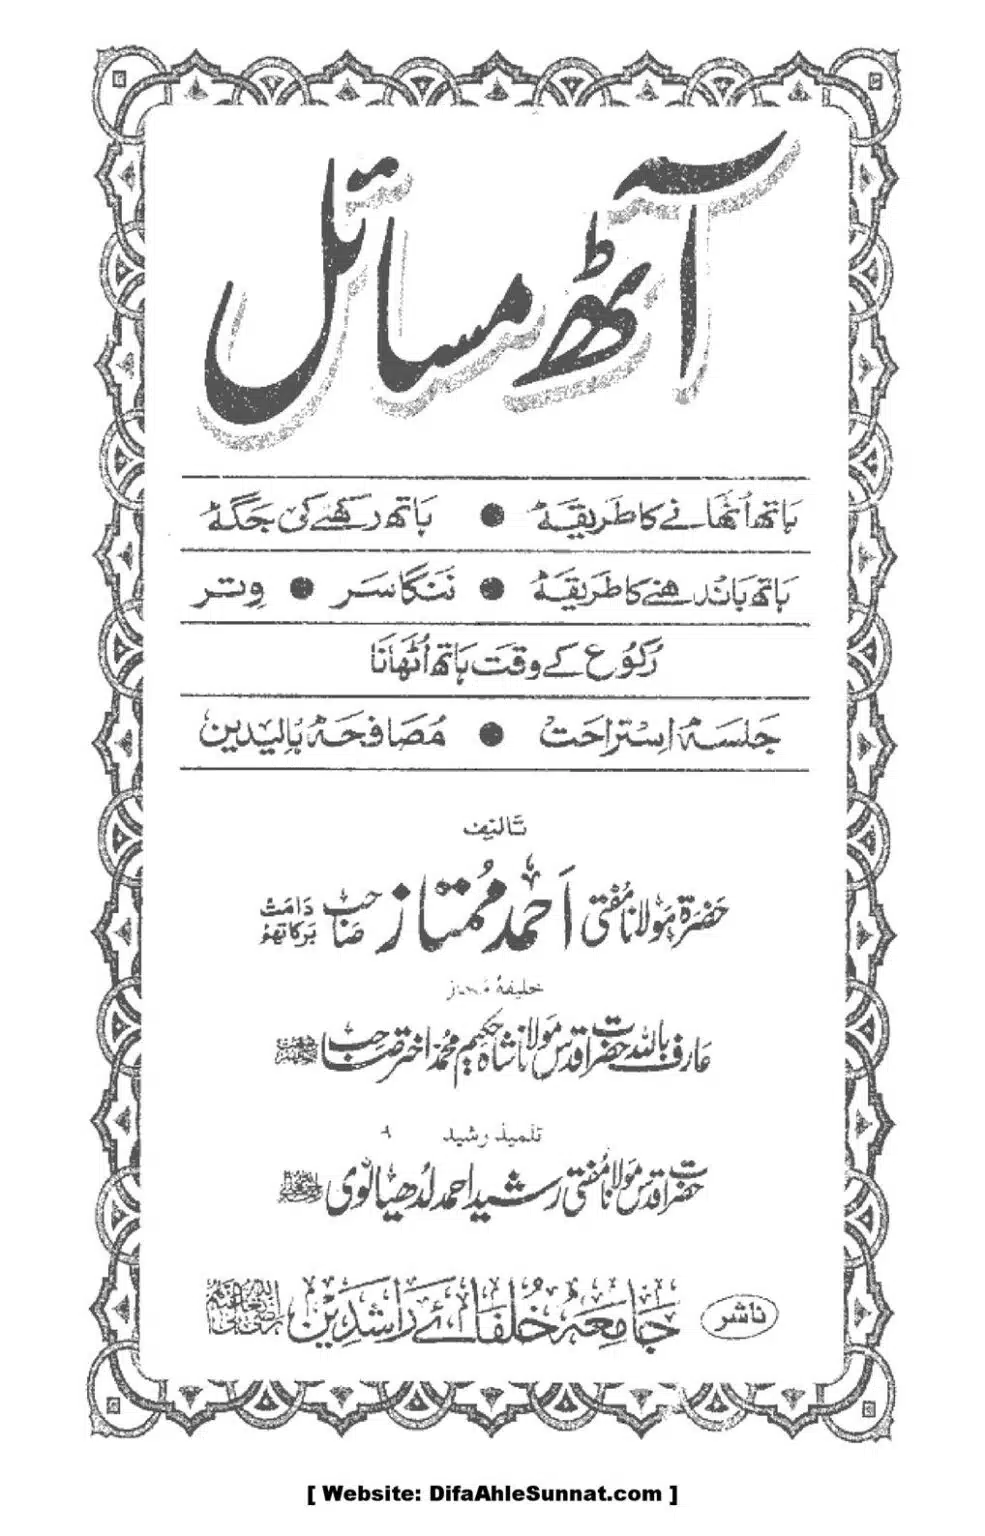 آٹھ مسائل
ہاتھ اُٹھانے کا طریقہ ● ہاتھ رکھنے کی جگہ
ہاتھ باندھنے کا طریقہ ● ننگا سر ● وتر
رکوع کے وقت ہاتھ اُٹھانا
جلسہ استراحت ● مصافحہ بالیدین
تالیف
حضرۃ مولانا مفتی احمد ممتاز صاحب دامت برکاتہم
خلیفۂ مجاز
عارف باللہ حضرت اقدس مولانا شاہ حکیم محمد اختر صاحب
تلمیذ رشید
حضرت اقدس مولانا مفتی رشید احمد لدھیانوی
ناشر جامعہ خلفائے راشدین
[ Website: DifaAhleSunnat.com ]